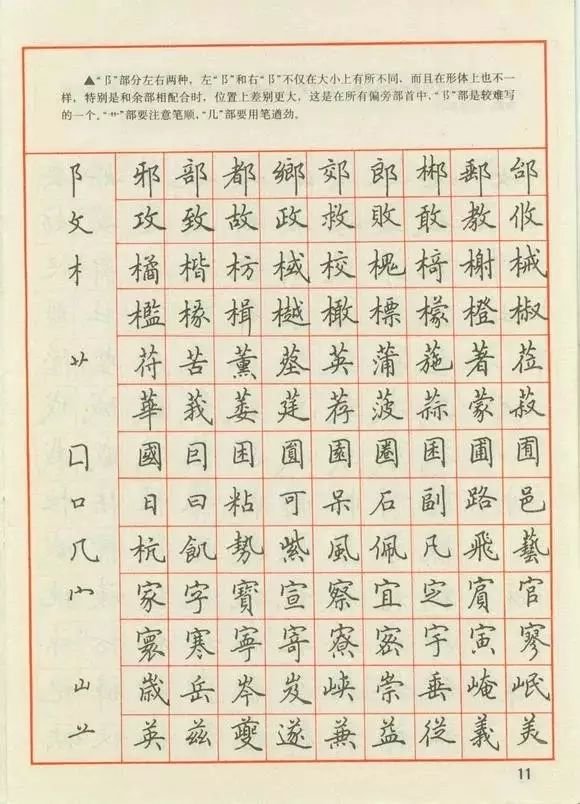 ▲“阝”部分左右两种，左“阝”和右“阝”不仅在大小上有所不同，而且在形体上也不一
样，特别是和余部相配合时，位置上差别更大，这是在所有偏旁部首中，“阝”部是较难写
的一个。“艹”部要注意笔顺，“几”部要用笔遒劲。
阝 邪 部 都 鄉 郊 郎 郴 郵 邰
攵 攻 致 故 政 救 敗 敢 教 攸
木 橘 楷 枋 棫 校 槐 椅 榭 械
檻 椽 楫 樾 橄 標 檬 橙 椒
艹 苻 苦 薰 英 蒲 葹 著 莅
華 莪 蒌 莛 荐 菠 蒜 蒙 菽
囗 國 回 困 園 圈 困 圃
口 日 曰 粘 可 呆 石 副 路 邑
几 杭 飢 勢 紫 風 佩 凡 飛 藝
宀 家 字 寶 宣 察 宜 定 賓 官
寰 寒 寧 寄 寮 密 宇 寅 寥
山 歲 岳 岑 岌 峽 崇 垂 崦 岷
䒑 英 兹 夔 遂 兼 益 從 義 美
11